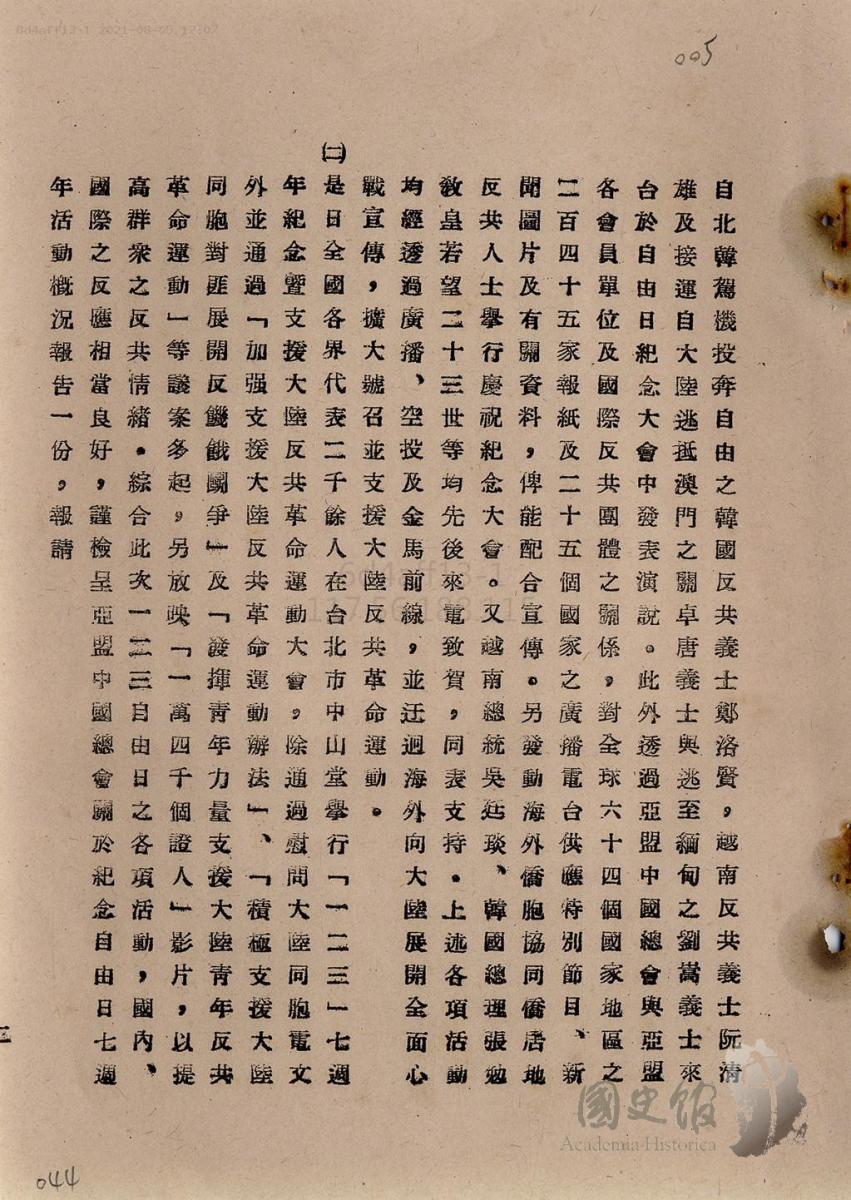 8d4aff13-1 2021-08-05 17:07
005
自北韓駕機投奔自由之韓國反共義士鄭洛賢，越南反共義士阮清
雄及接運自大陸逃抵澳門之關卓唐義士與逃至緬甸之劉嵩義士來
台於自由日紀念大會中發表演說。此外透過亞盟中國總會與亞盟
各會員單位及國際反共團體之關係，對全球六十四個國家地區之
二百四十五家報紙及二十五個國家之廣播電台供應特別節目、新
聞圖片及有關資料，俾能配合宣傳。另發動海外僑胞協同僑居地
反共人士舉行慶祝紀念大會。又越南總統吳廷琰、韓國總理張勉
教皇若望二十三世等均先後來電致賀，同表支持。上述各項活動
均經透過廣播、空投及金馬前線，並迂迴海外向大陸展開全面心
戰宣傳，擴大號召並支援大陸反共革命運動。
㈡是日全國各界代表二千餘人在台北市中山堂舉行「一二三」七週
年紀念暨支援大陸反共革命運動大會，除通過慰問大陸同胞電文
外並通過「加强支援大陸反共革命運動辦法」、「積極支援大陸
同胞對匪展開反饑餓鬪爭」及「發揮青年力量支援大陸青年反共
革命運動」等議案多起，另放映「一萬四千個證人」影片，以提
高群衆之反共情緒。綜合此次一二三自由日之各項活動，國內、
國際之反應相當良好，謹檢呈亞盟中國總會關於紀念自由日七週
年活動概況報告一份，報請
國史館
Academia Historica
044